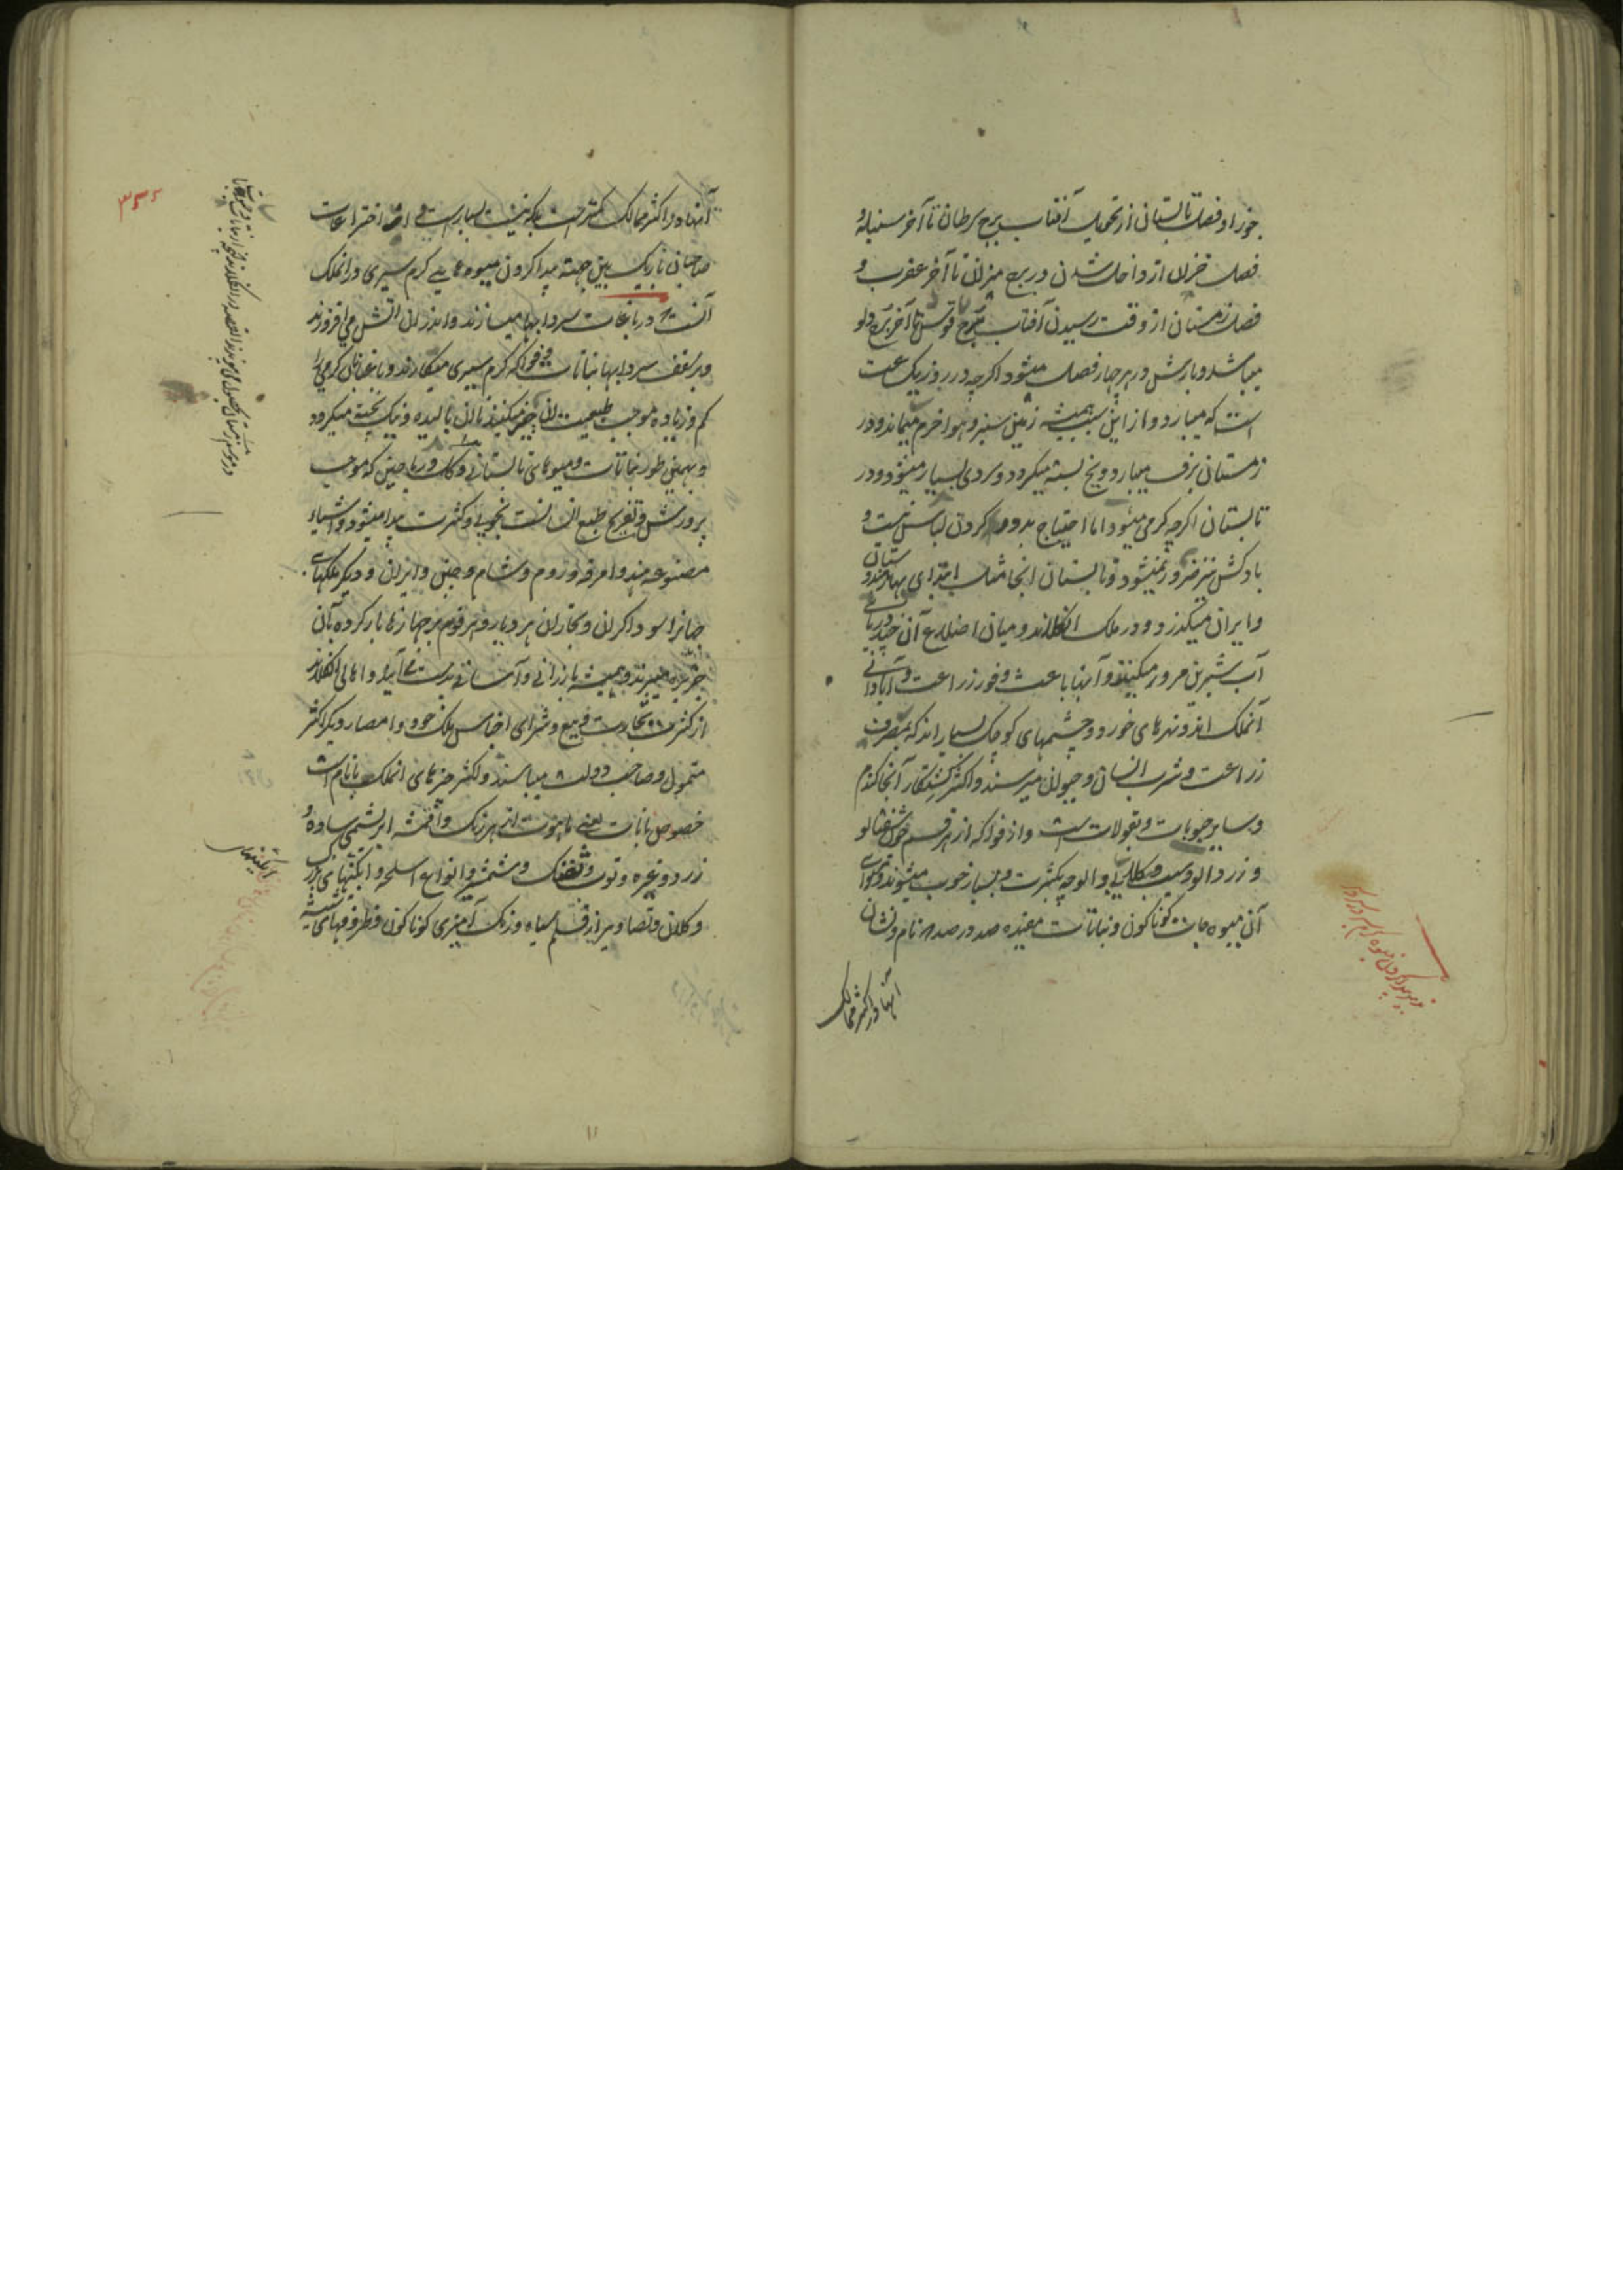 جوزا و فصل تابستان از تحویل آفتاب ببرج سرطان تا آخر سنبله و
فصل خزان از داخل شدن در برج میزان تا آخر عقرب و
فصل زمستان از وقت رسیدن آفتاب ببرج قوس تا آخر برج دلو
میباشد و بارش در هر چهار فصل میشود اکرچه در روز یک ساعت
است که میبارد و از این سبب همیشه زمین سبز و هوا خرم میماند و در
زمستان برف میبارد و یخ بسته میکردد و سردی بسیار میشود و در
تابستان اکرچه کرمی میشود اما احتیاج بدور کردن لباس نیست و
بادکش نیز ضرور نمیشود و تابستان انجا مثل ابتدای بهار هندوستان
و ایران میکذرد و در ملک انکلاند و میان اضلاع آن چند دریای
آب شیرین مرور میکنند و آنها باعث وفور زراعت و آبادانی
آنملک اند و نهرهای خورد و چشمهای کوچک بسیار اند که بمصرف
زراعت و شرب انسان و حیوان میرسند و اکثر کشتکار آنجا کندم
و سایر حبوبات و بقولات است و از فواکه از هر قسم خوش شفتالو
و زردالو و سیب و کلابی و الوچه بکثرت و بسیار خوب میشوند و سوای
آن میوه جات کوناکون و نباتات مفیده صد در صد که نام و نشان
آنها در اکثر ممالک
آنها در اکثر ممالک کمتر است بلکه نیست بسیار است و از اختراعات
صاحبان باریک بین جهته پیدا کردن میوه های کرم سیری در انملک
آنست که در باغات سردابها میسازند و اندران اتش می افروزند
و بر سقف سردابها نباتات و فواکه کرم سیری میکارند و باغبانان کرمی را
کم و زیاده موجب طبیعت ان چیز میکنند تا ان بالیده و نیک پخته میکردد
و بهمین طور نباتات و میوهای تابستانی و کل و ریاحین که موجب
پرورش و تفریح طبع انسانست بخوبی و کثرت پیدا میشود و اشیاء
مصنوعه هند و افرقه و روم و شام و چین و ایران و دیکر ملکهای
جهانرا سوداکران و تجاران هر دیار و هر قوم بر جهازها بار کرده بآن
جزیره میبرند و همیشه بارزانی و آسانی بدست می آید و اهالی انکلاند
از کثرت تجارت و بیع و شرای اجناس ملک خود و امصار دیکر اکثر
متمول و صاحب دولت میباشند و اکثر چیزهای انملک بانام است
خصوص بانات یعنی ماهوت از هر رنک و اقمشه ابریشمی ساده و
زردوز و غیره و توپ و تفنک و شمشیر و انواع اسلحه و آبکینهای بزرک
و کلان و تصاویر از قلم سیاه و رنک آمیزی کوناکون و ظروفهای شیشه